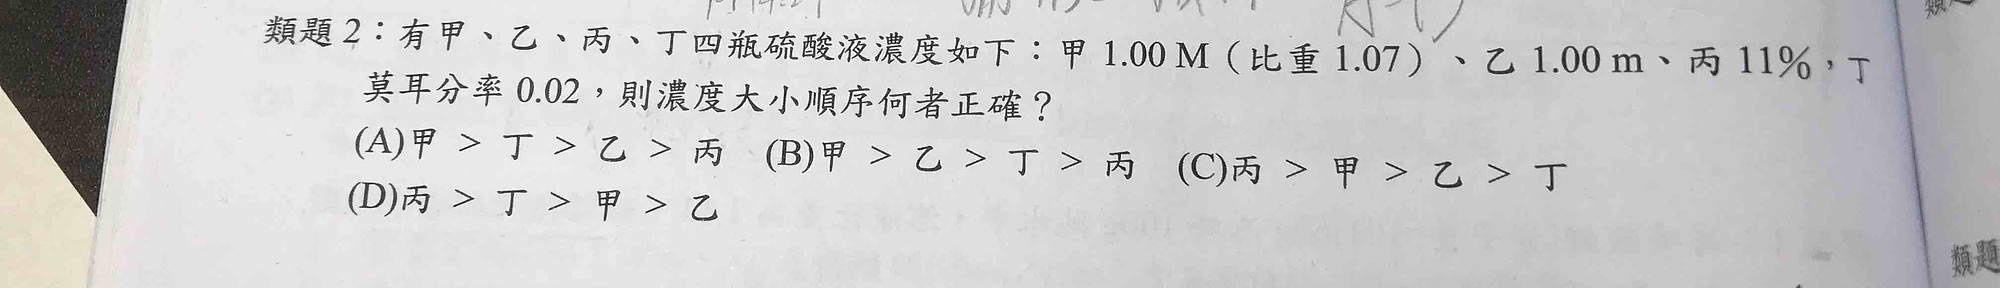 類題 2：有甲、乙、丙、丁四瓶硫酸液濃度如下：甲 1.00 M（比重 1.07）、乙 1.00 m、丙 11%，丁
莫耳分率 0.02，則濃度大小順序何者正確？
(A)甲 > 丁 > 乙 > 丙 (B)甲 > 乙 > 丁 > 丙 (C)丙 > 甲 > 乙 > 丁
(D)丙 > 丁 > 甲 > 乙
類題
類題